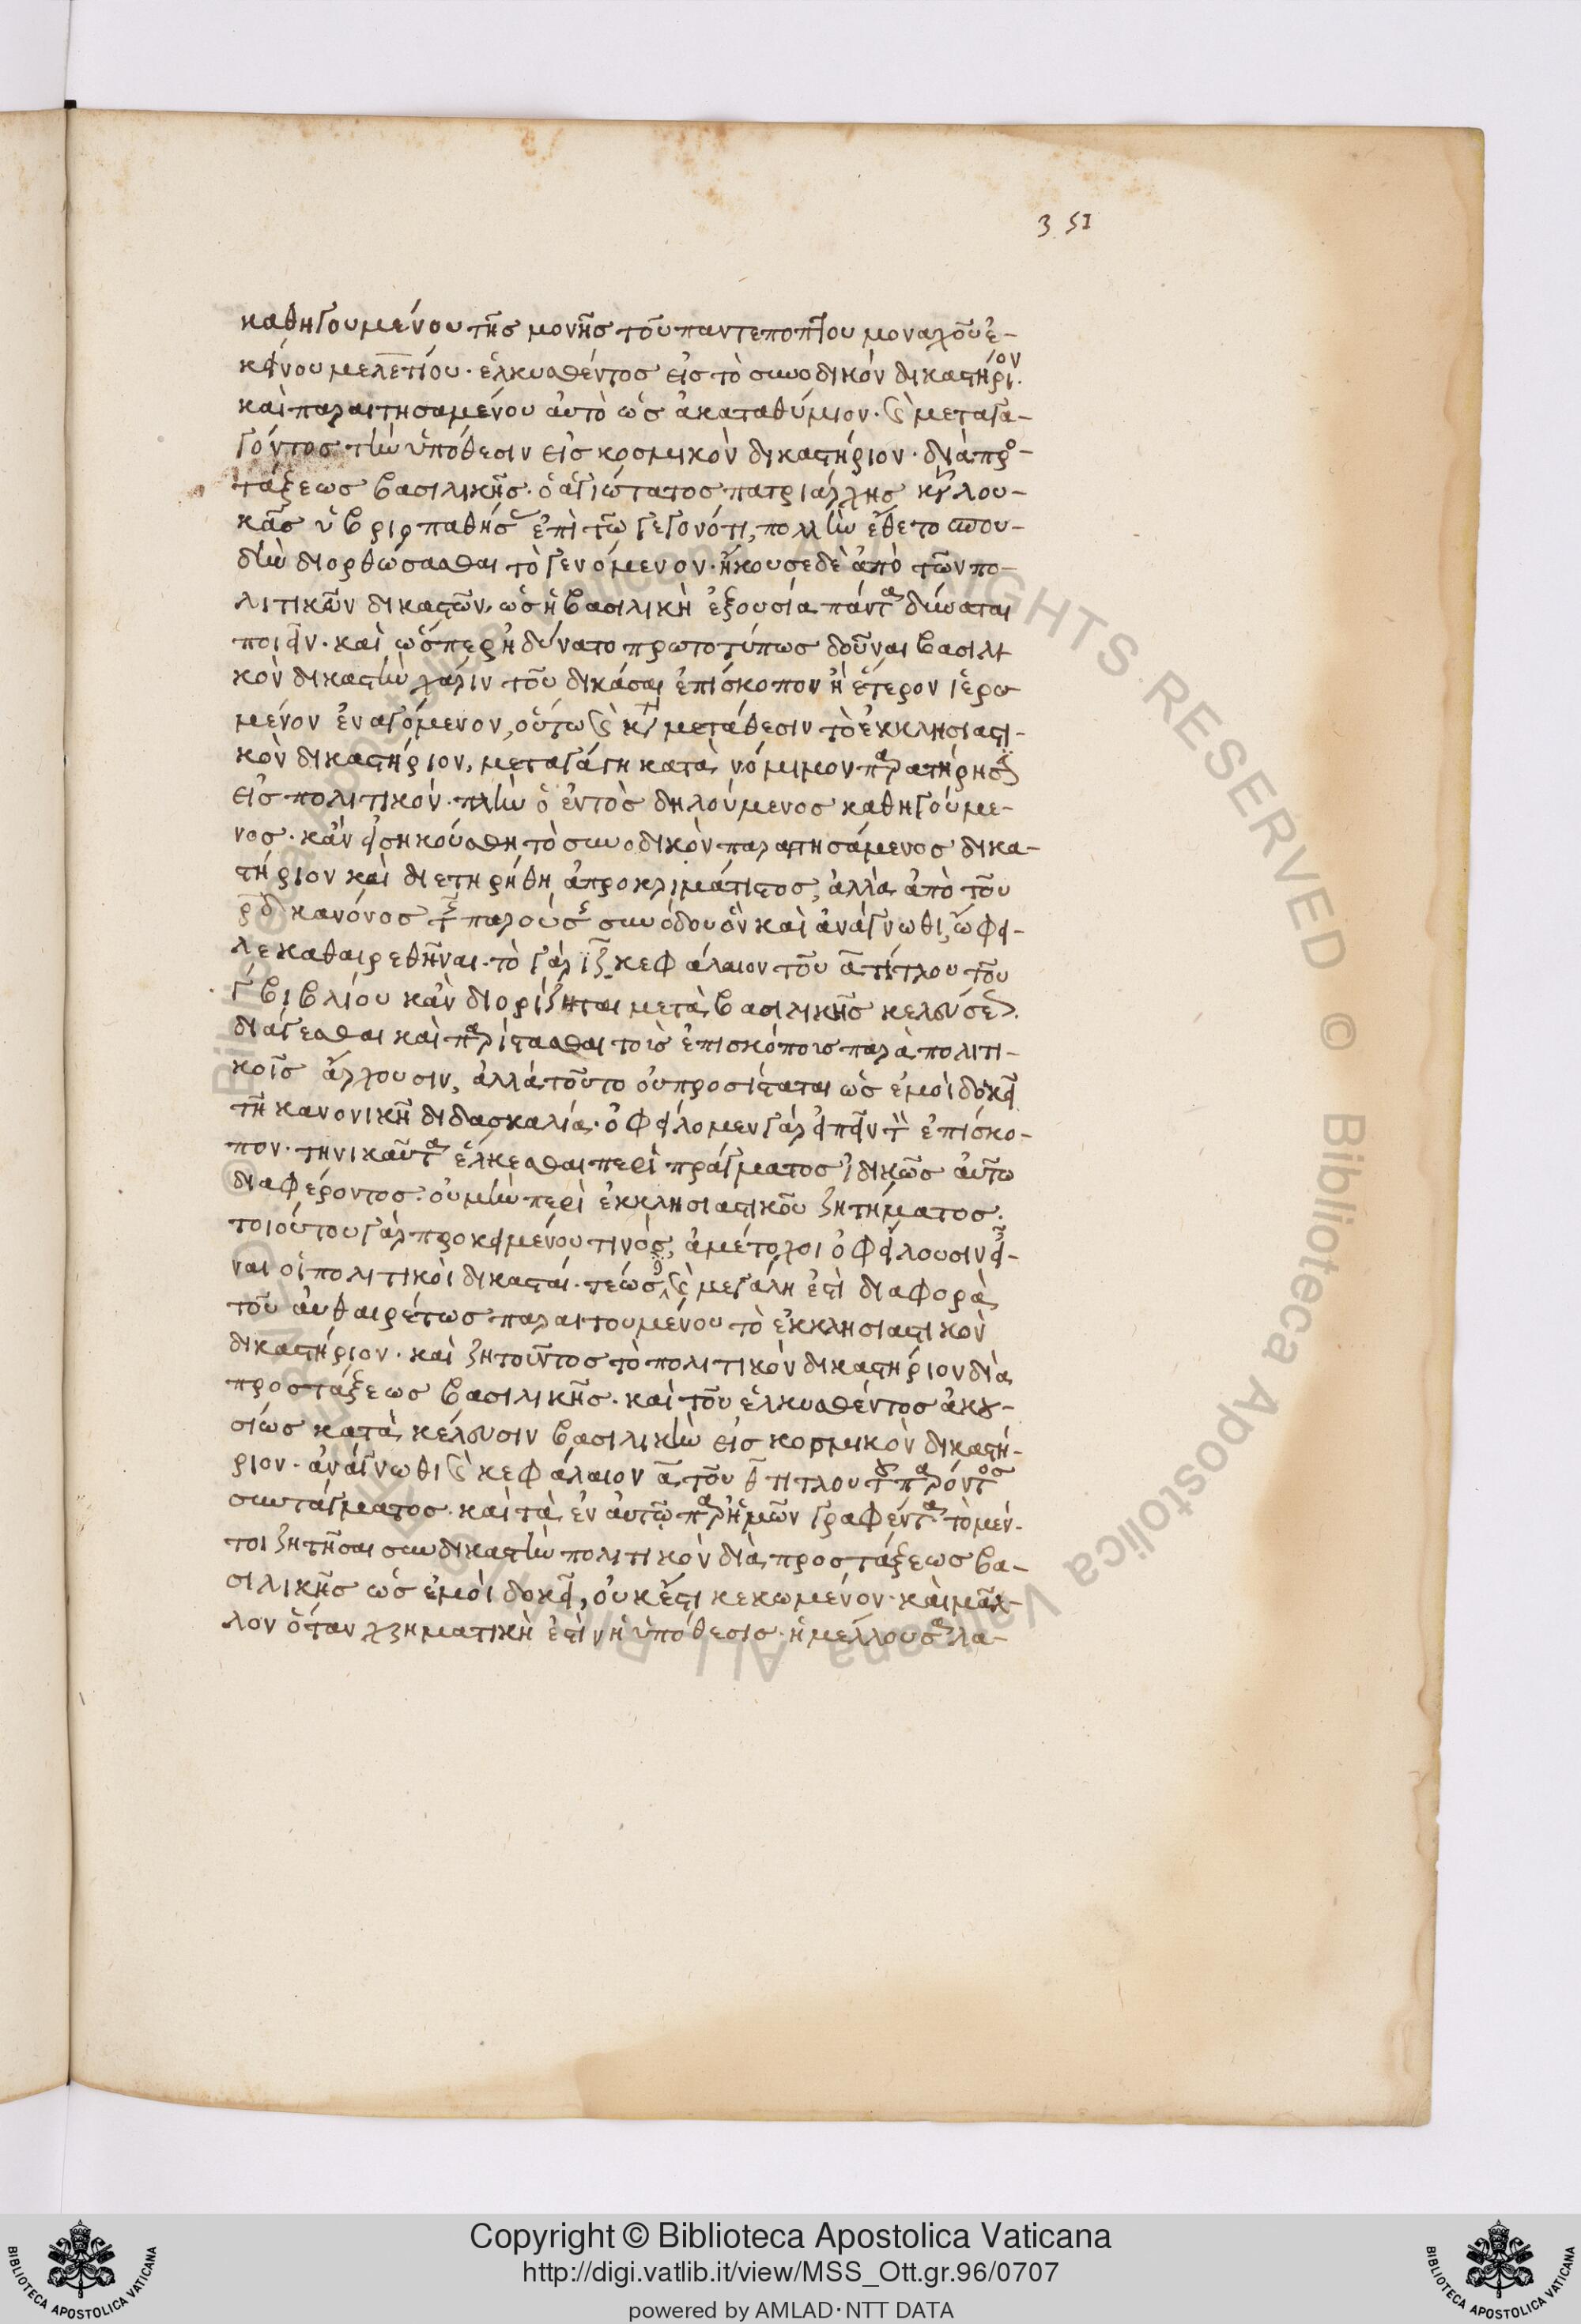 351
καθηγουμένου τῆς μονῆς τοῦ παντεπόπτου μοναχοῦ ἐ-
κείνου μελετίου· ἑλκυσθέντος εἰς τὸ συνοδικὸν δικαστήριον.
καὶ παραιτησαμένου αὐτὸ ὡς ἀκαταθύμιον· καὶ μεταγα-
γόντος τὴν ὑπόθεσιν εἰς κοσμικὸν δικαστήριον· διὰ προ-
τάξεως βασιλικῆς· ὁ ἁγιώτατος πατριάρχης κῦρ λου-
κᾶς ὑβριοπαθήσας ἐπὶ τῶ γεγονότι, πολλὴν ἔθετο σπου-
δὴν διορθώσασθαι τὸ γενόμενον· ἤκουσε δὲ ἀπὸ τῶν πο-
λιτικῶν δικαστῶν, ὡς ἡ βασιλικὴ ἐξουσία πάντα δύναται
ποιεῖν· καὶ ὥσπερ ἠδύνατο πρωτοτύπως δοῦναι βασιλι
κὸν δικαστὴν χάριν τοῦ δικάσαι ἐπίσκοπον ἢ ἕτερον ἱερω
μένον ἐναγόμενον, οὕτω καὶ κατὰ μετάθεσιν τὸ ἐκκλησιαστι-
κὸν δικαστήριον, μεταγάγη κατὰ νόμιμον παρατήρησιν
εἰς πολιτικόν· πλὴν ὁ ἐντὸς δηλούμενος καθηγούμε-
νος· κἂν εἰσηκούσθη τὸ συνοδικὸν παραιτησάμενος δικα-
στήριον καὶ διετηρήθη ἀπροκριμάτιστος, ἀλλὰ ἀπὸ τοῦ
ρδ κανόνος τῆς παρούσης συνόδου ὃν καὶ ἀνάγνωθι, ὤφει-
λε καθαιρεθῆναι· τὸ γὰρ ιζ κεφάλαιον τοῦ α τίτλου τοῦ
γ βιβλίου κἂν διορίζηται μετὰ βασιλικῆς κελεύσεως
διάγεσθαι καὶ παρίστασθαι τοὺς ἐπισκόπους παρὰ πολιτι-
κοῖς ἄρχουσιν, ἀλλὰ τοῦτο οὐ προσίεται ὡς ἐμοὶ δοκεῖ
τῆ κανονικῆ διδασκαλία· ὀφείλομεν γὰρ εἰπεῖν τὸν ἐπίσκο-
πον· τηνικαῦτα ἕλκεσθαι περὶ πράγματος ἰδικῶς αὐτῶ
διαφέροντος· οὐ μὴν περὶ ἐκκλησιαστικοῦ ζητήματος.
τοιούτου γὰρ προκειμένου τινός, ἀμέτοχοι ὀφείλουσιν εἶ-
ναι οἱ πολιτικοὶ δικασταί· τέως καὶ μεγάλη ἐστὶ διαφορὰ
τοῦ αὐθαιρέτως παραιτουμένου τὸ ἐκκλησιαστικὸν
δικαστήριον· καὶ ζητοῦντος τὸ πολιτικὸν δικαστήριον διὰ
προστάξεως βασιλικῆς· καὶ τοῦ ἑλκυσθέντος ἀκου-
σίως κατὰ κέλευσιν βασιλικὴν εἰς κοσμικὸν δικαστή-
ριον· ἀνάγνωθι καὶ κεφάλαιον α τοῦ θ τίτλου τοῦ παρόντος
συντάγματος· καὶ τὰ ἐν αὐτῶ παρ' ἡμῶν γραφέντα· τὸ μέν-
τοι ζητῆσαι συνδικαστὴν πολιτικὸν διὰ προστάξεως βα-
σιλικῆς ὡς ἐμοὶ δοκεῖ, οὐκ ἔστι κεκωμένον· καὶ μᾶλ-
λον ὅταν χρηματικὴ ἐστὶν ἡ ὑπόθεσις· ἡ μέλλουσα λα-
Copyright © Biblioteca Apostolica Vaticana
http://digi.vatlib.it/view/MSS_Ott.gr.96/0707
powered by AMLAD·NTT DATA